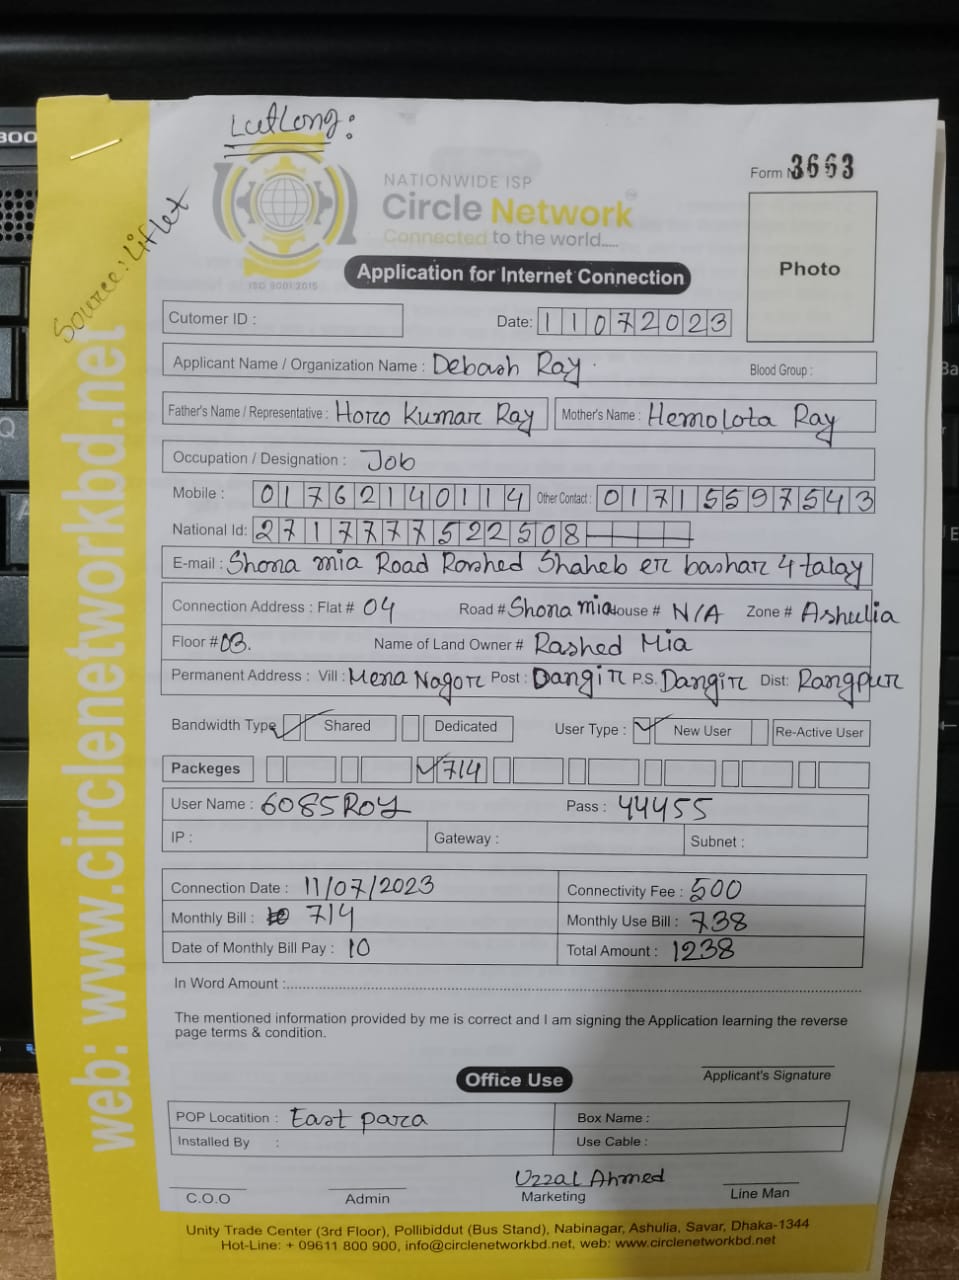 LatLong:
Source: Liflet
Form N 3663
NATIONWIDE ISP
Circle Network
Connected to the world.....
ISO 9001:2015
Application for Internet Connection
Photo
Cutomer ID :
Date: 11072023
Applicant Name / Organization Name : Debash Ray
Blood Group :
Father's Name / Representative : Horo Kumar Ray Mother's Name : Hemolota Ray
Occupation / Designation : Job
Mobile : 01762140114 Other Contact : 01715597543
National Id: 2717777522508
E-mail : Shona mia Road Rashed Shaheb er bashar 4 talay
Connection Address : Flat # 04 Road # Shona mia House # N/A Zone # Ashulia
Floor # 03. Name of Land Owner # Rashed Mia
Permanent Address : Vill : Mena Nagor Post : Dangir P.S. Dangir Dist: Rangpur
Bandwidth Type Shared Dedicated User Type : New User Re-Active User
Packeges 714
User Name : 6085ROY Pass : 44455
IP : Gateway : Subnet :
Connection Date : 11/07/2023 Connectivity Fee : 500
Monthly Bill : 714 Monthly Use Bill : 738
Date of Monthly Bill Pay : 10 Total Amount : 1238
In Word Amount :
The mentioned information provided by me is correct and I am signing the Application learning the reverse
page terms & condition.
Applicant's Signature
Office Use
POP Locatition : East para Box Name :
Installed By : Use Cable :
Uzzal Ahmed
C.O.O Admin Marketing Line Man
Unity Trade Center (3rd Floor), Pollibiddut (Bus Stand), Nabinagar, Ashulia, Savar, Dhaka-1344
Hot-Line: + 09611 800 900, info@circlenetworkbd.net, web: www.circlenetworkbd.net
web: www.circlenetworkbd.net